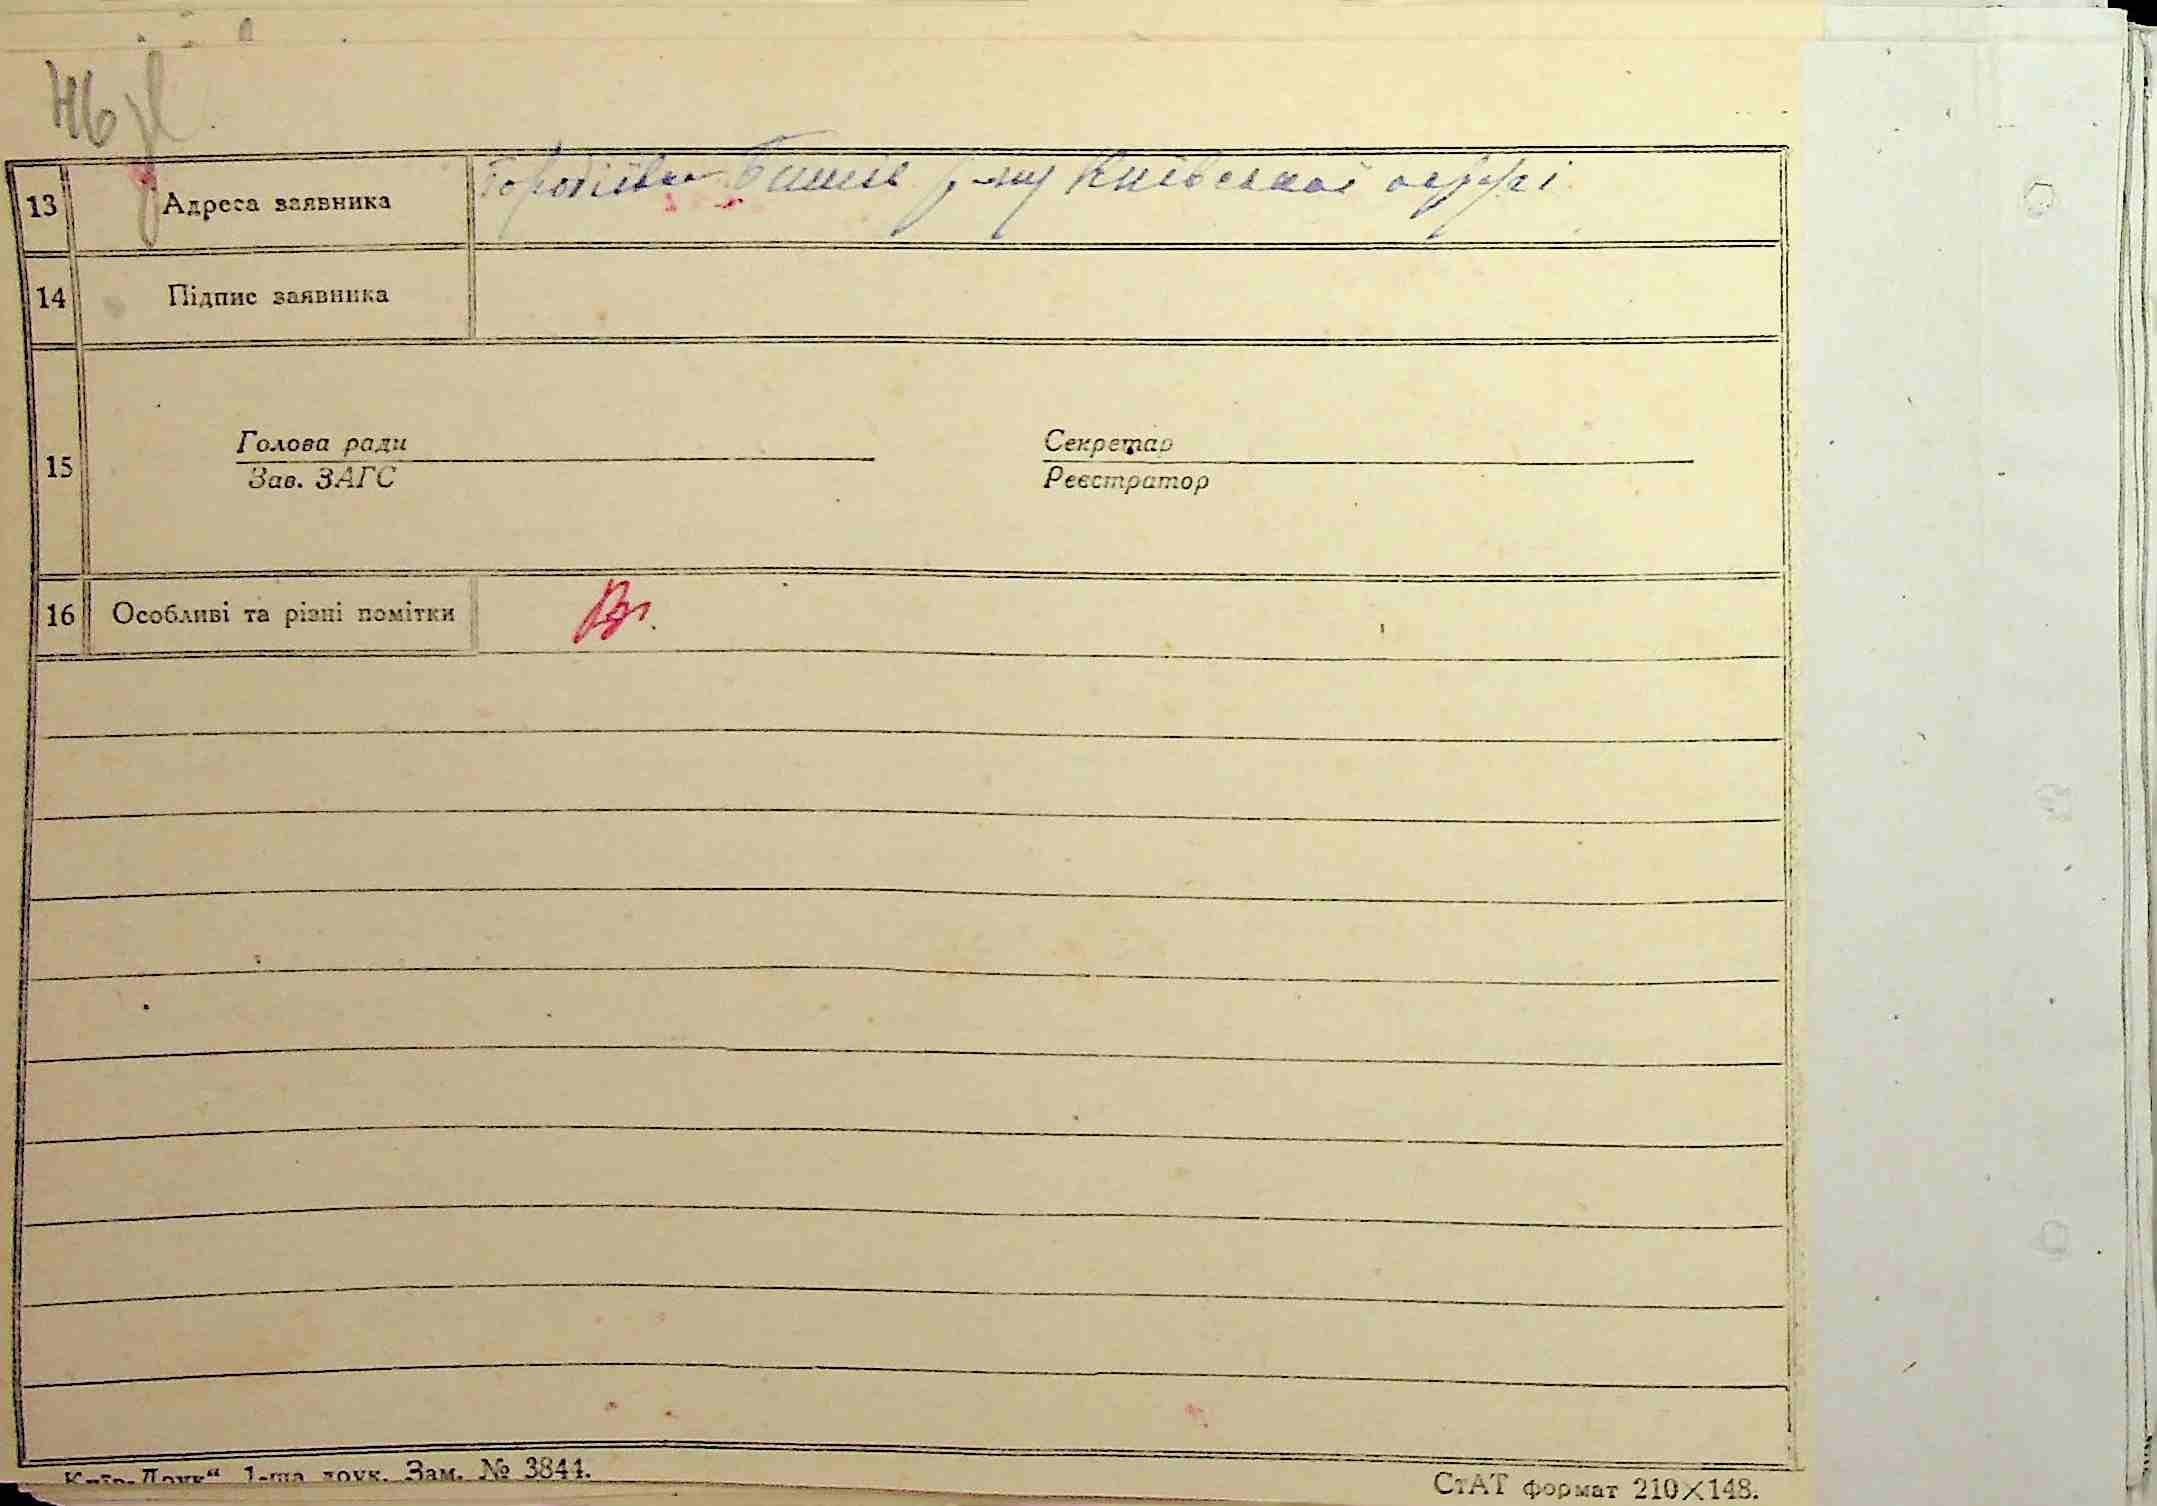 46
13 Адреса заявника Київської округі
14 Підпис заявника
15 Голова ради Секретар
Зав. ЗАГС Реєстратор
16 Особливі та різні помітки
„Київ-Друк“ 1-ша друк. Зам. № 3844.
СтАТ формат 210×148.